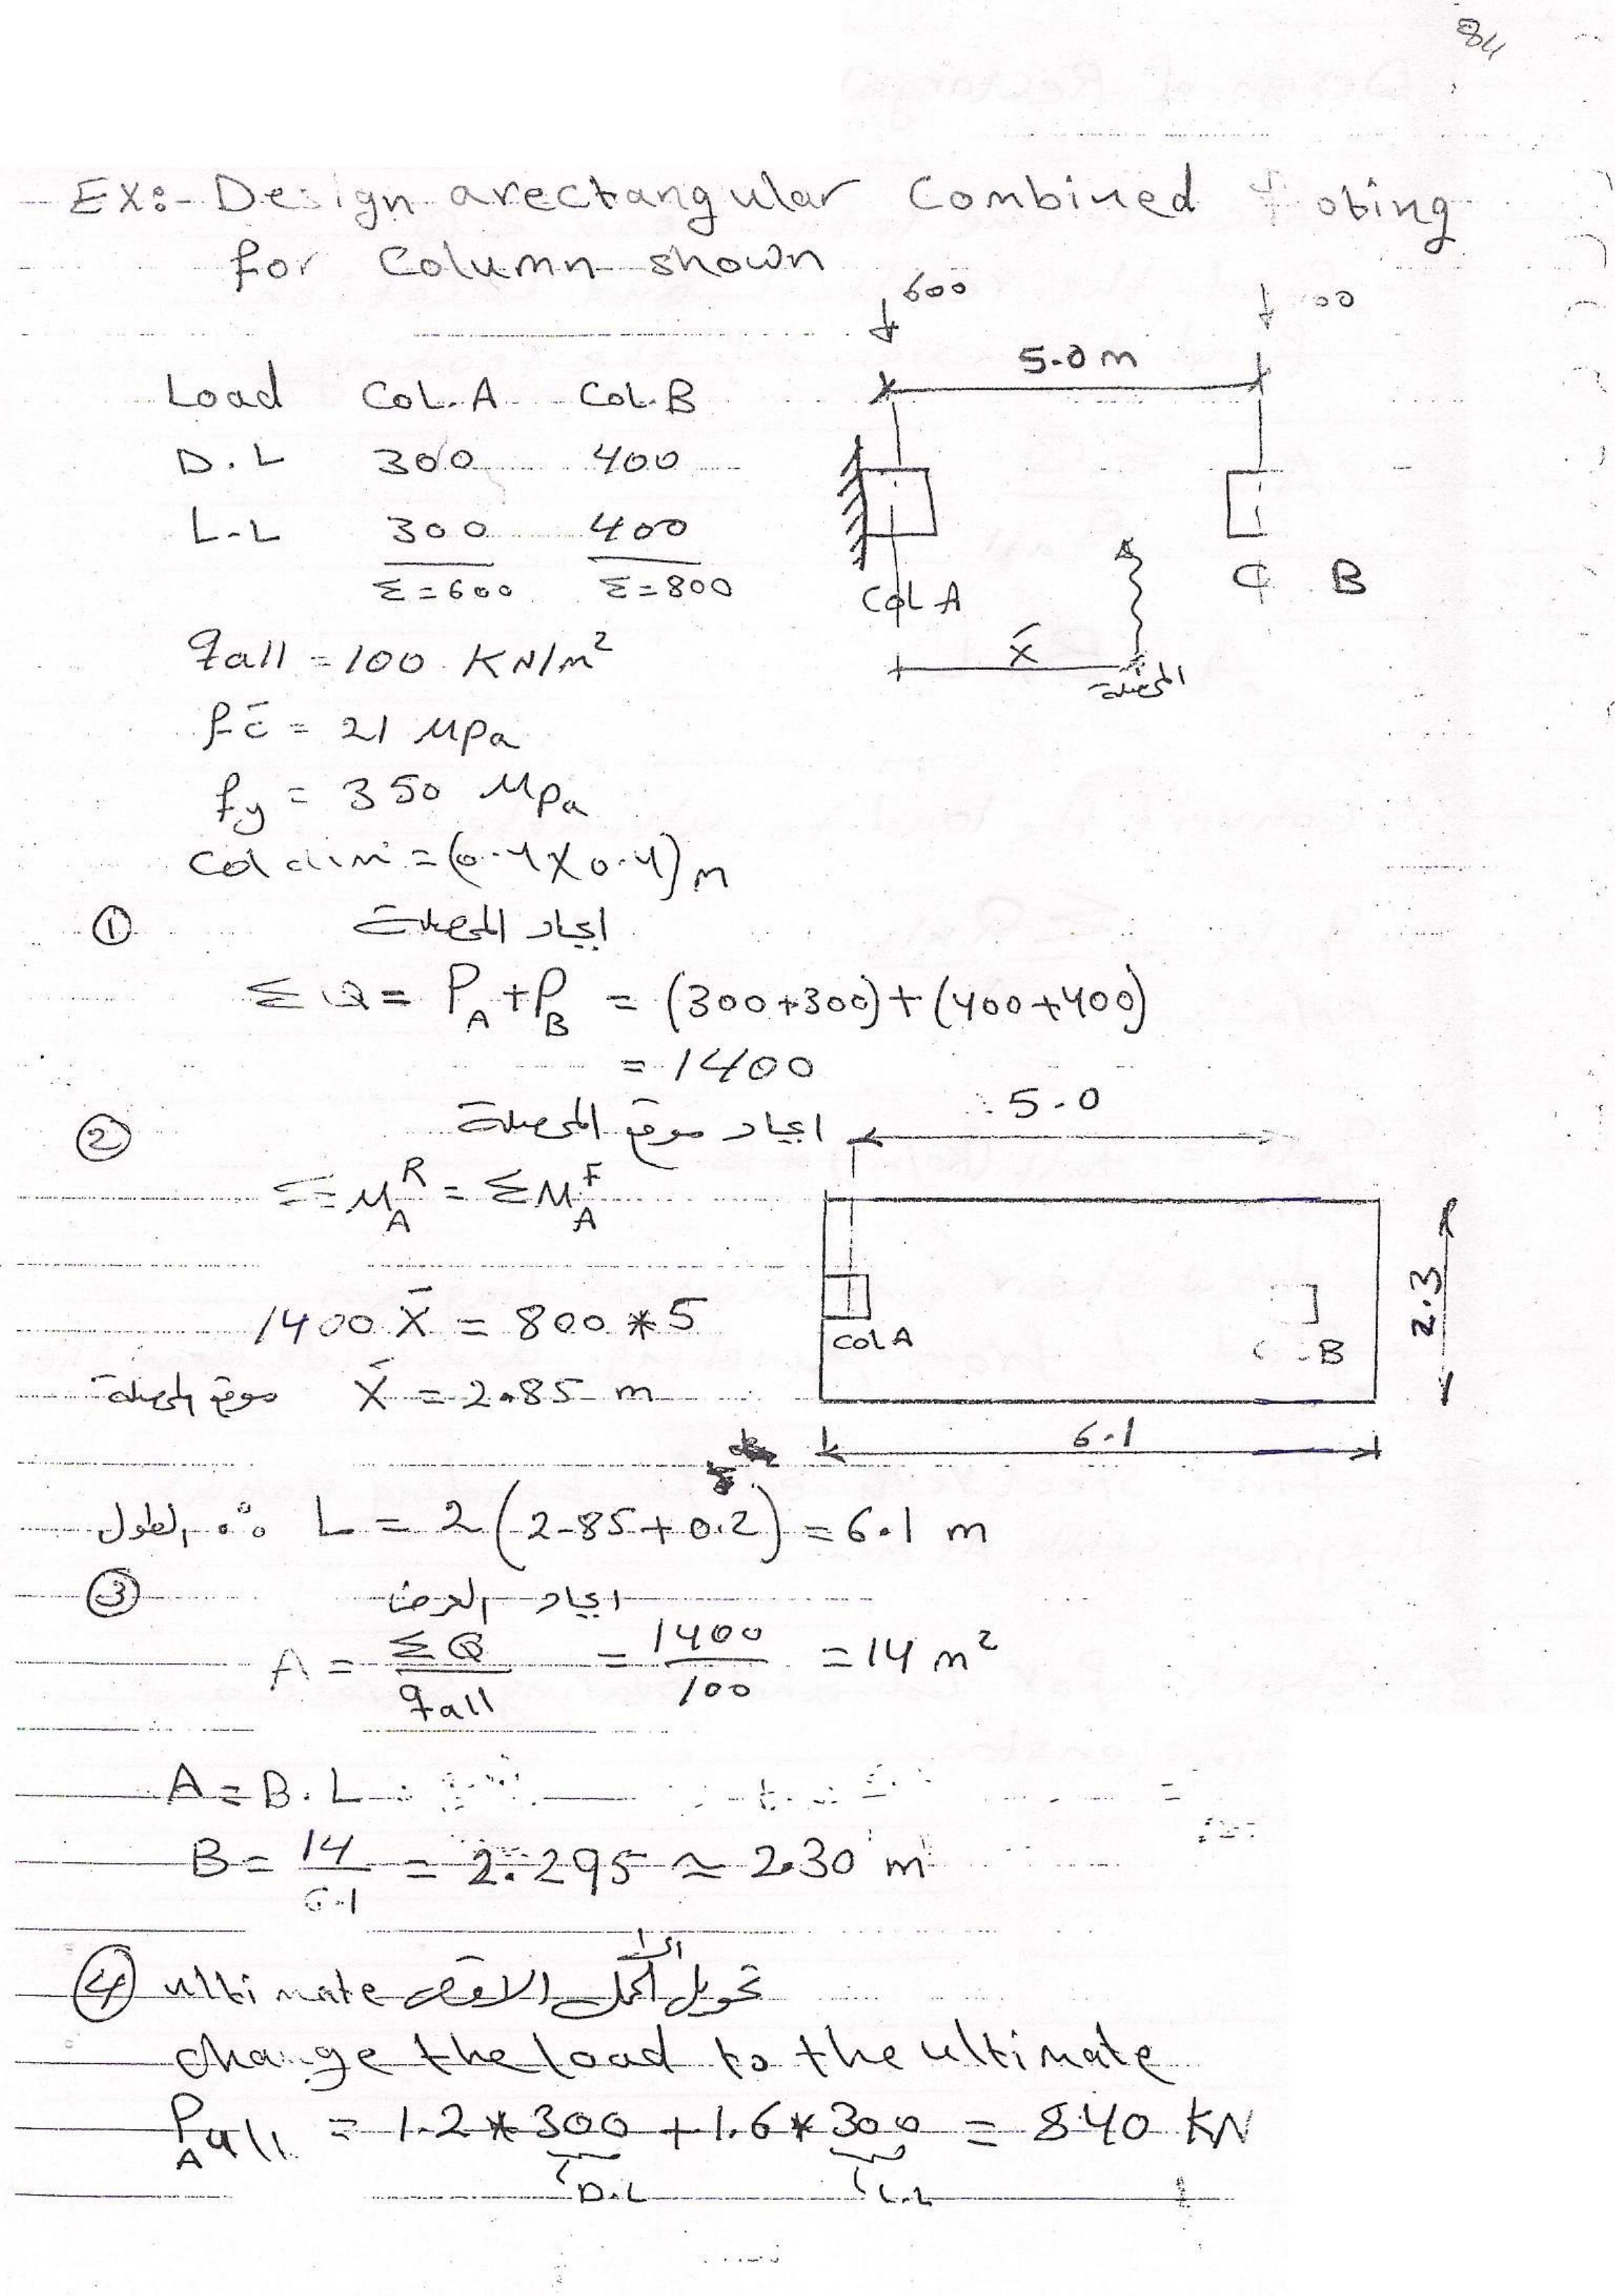 84
EX:- Design a rectangular Combined
for Column shown
600
5.0 m
Load Col.A Col.B
D.L 300 400
L.L 300 400
Σ=600 Σ=800
Col A
B
x̄
المحصلة
qall = 100 KN/m²
fc̄ = 21 MPa
fy = 350 MPa
Col dim = (0.4 X 0.4) m
① ايجاد المحصلة
ΣQ = P_A + P_B = (300+300) + (400+400)
= 1400
② ايجاد موقع المحصلة
5.0
ΣM_A^R = ΣM_A^F
1400 x̄ = 800 * 5
موقع المحصلة x̄ = 2.85 m
Col A
B
2.3
6.1
الطول ∴ L = 2 (2.85 + 0.2) = 6.1 m
③ ايجاد العرض
A = ΣQ / qall = 1400 / 100 = 14 m²
A = B.L
B = 14 / 6.1 = 2.295 ≈ 2.30 m
④ تحويل الحمل الاقصى الى ultimate
change the load to the ultimate
P_A ull = 1.2 * 300 + 1.6 * 300 = 840 KN
D.L L.L